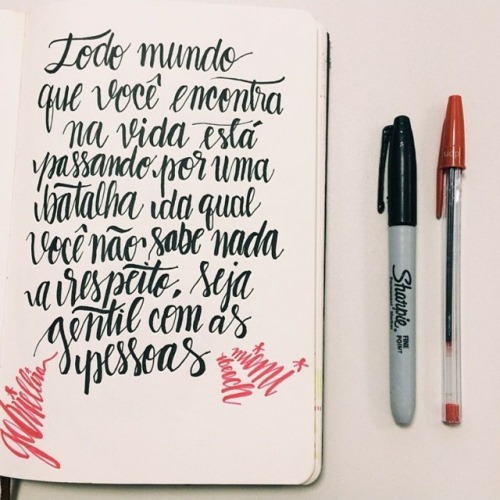 Todo mundo
que você encontra
na vida está
passando por uma
batalha da qual
você não sabe nada
a respeito. Seja
gentil com as
pessoas
miami
beach
Sharpie
FINE
POINT